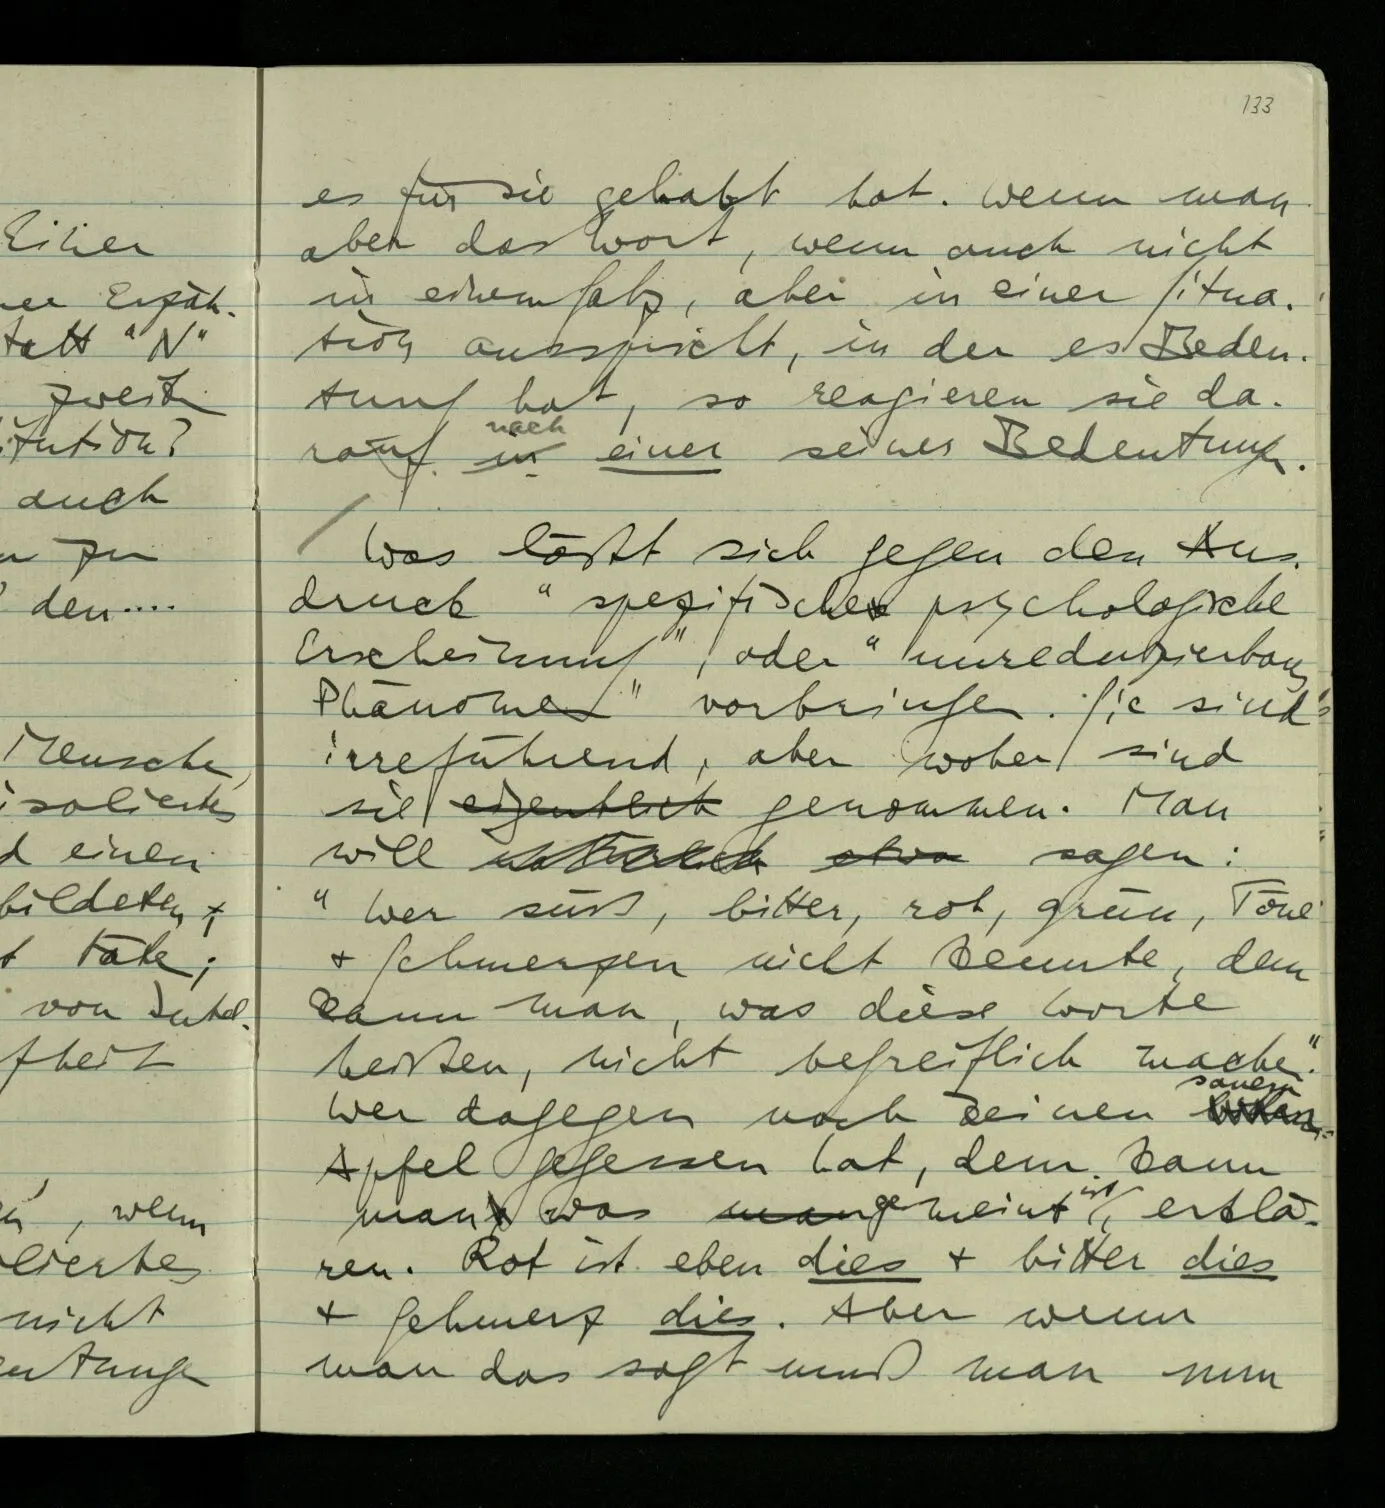 133
es für sie gehabt hat. Wenn man
aber das Wort, wenn auch nicht
in einem Satz, aber in einer Situa-
tion ausspricht, in der es Bedeu-
tung hat, so reagieren sie da-
nach
rauf in einer seiner Bedeutungen.
/ Was läßt sich gegen den Aus-
druck "spezifische psychologische
Erscheinung", oder "unreduzierbares
Phänomen" vorbringen. Sie sind
irreführend, aber woher sind
sie eigentlich genommen. Man
will natürlich etwa sagen:
"Wer süß, bitter, rot, grün, Töne
+ Schmerzen nicht kennte, dem
kann man, was diese Worte
heißen, nicht begreiflich machen."
sauern
Wer dagegen noch keinen
Apfel gegessen hat, dem kann
man was man gemeint ist, erklä-
ren. Rot ist eben dies + bitter dies
+ Schmerz dies. Aber wenn
man das sagt muß man nun
Einer
ner Erzäh-
tatt "N"
zweite
itution?
auch
zu
den....
Mensche
isoliertes
d einen
bildeten, +
t täte;
von Intel-
fheit
, wenn
oliertes
nicht